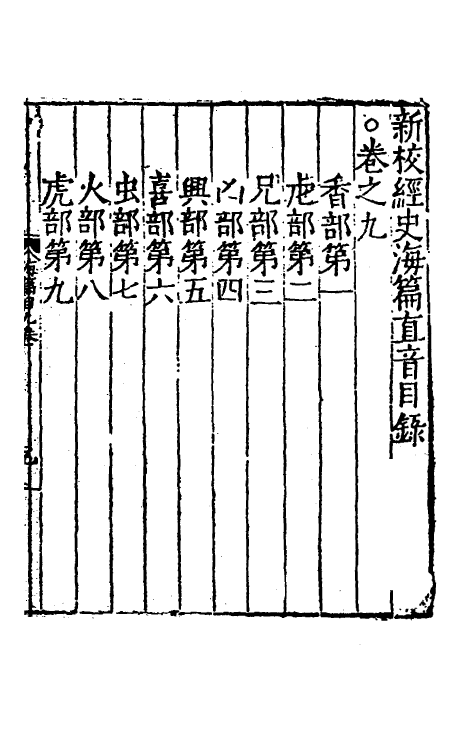 新校經史海篇直音目錄
○卷之九
香部第一
虍部第二
兄部第三
凶部第四
興部第五
喜部第六
虫部第七
火部第八
虎部第九